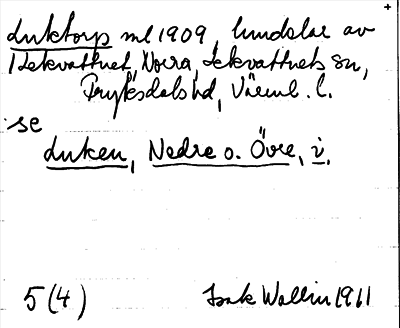 Luktorp ml 1909, lundelar av
Lekvattnet, Norra, Lekvattnets sn,
Fryksdals hd, Värml. l.
se
Luken, Nedre o. Övre, i.
5 (4) Isak Wallin 1961